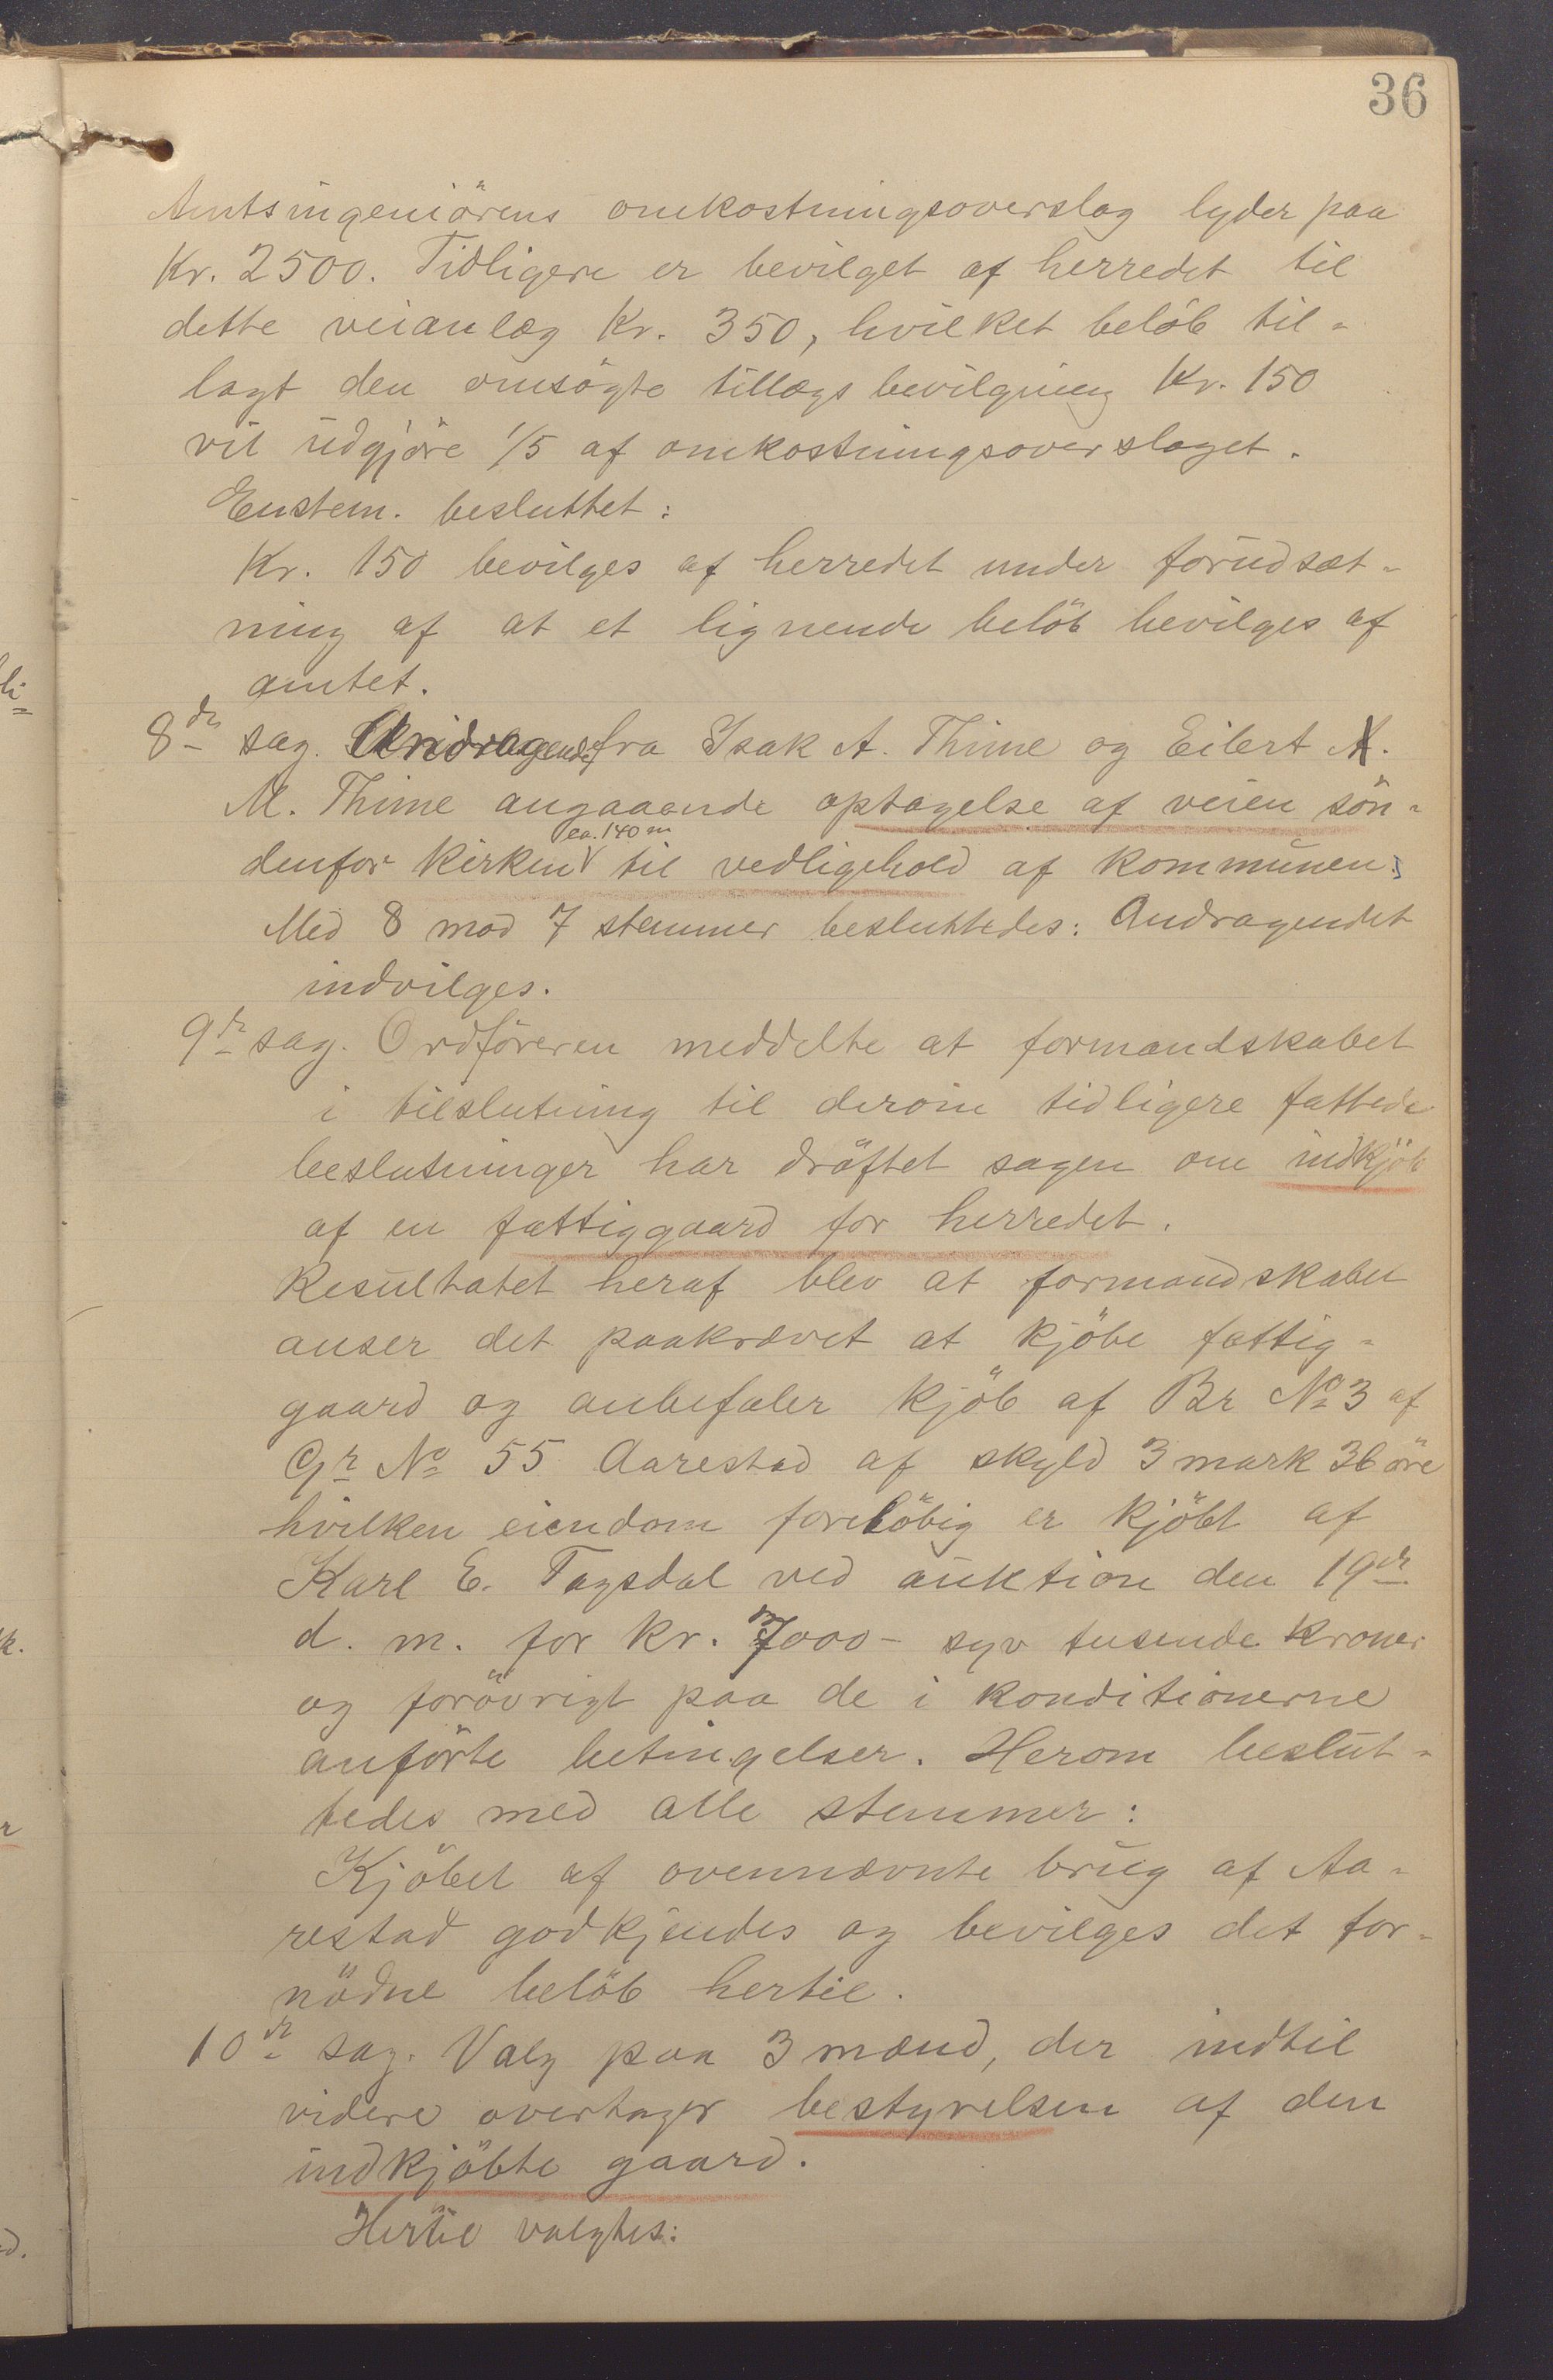 36
Amtsingeniörens omkostningsoverslag lyder paa
Kr. 2500. Tidligere er bevilget af herredet til
dette veianlæg Kr. 350, hvilket belöb til-
lagt den omsögte tillægsbevilgning Kr. 150
vil udgjöre 1/5 af omkostningsoverslaget.
Enstem. besluttet:
Kr. 150 bevilges af herredet under forudsæt-
ning af at et lignende belöb bevilges af
amtet.
8de sag. Andragende fra Isak A. Thime og Eilert
M. Thime angaaende optagelse af veien sön-
ca. 140 m
denfor kirken til vedligehold af kommunen.
Med 8 mod 7 stemmer besluttedes: Andragendet
indvilges.
9de sag. Ordföreren meddelte at formandskabet
i tilslutning til derom tidligere fattede
beslutninger har dröftet sagen om indkjöb
af en fattiggaard for herredet.
Resultatet heraf blev at formandskabet
anser det paakrævet at kjöbe fattig-
gaard og anbefaler kjöb af Br No 3 af
Gr No 55 Aarestad af skyld 3 mark 36 öre
hvilken eiendom forelöbig er kjöbt af
Karl E. Tagsdal ved auktion den 19de
d. m. for kr. 7000 - syv tusende kroner
og forövrigt paa de i konditionerne
anförte betingelser. Herom beslut-
tedes med alle stemmer:
Kjöbet af ovennævnte brug af Aa-
restad godkjendes og bevilges det for-
nödne belöb hertil.
10de sag. Valg paa 3 mænd, der indtil
videre overtager bestyrelsen af den
indkjöbte gaard.
Hertil valgtes: